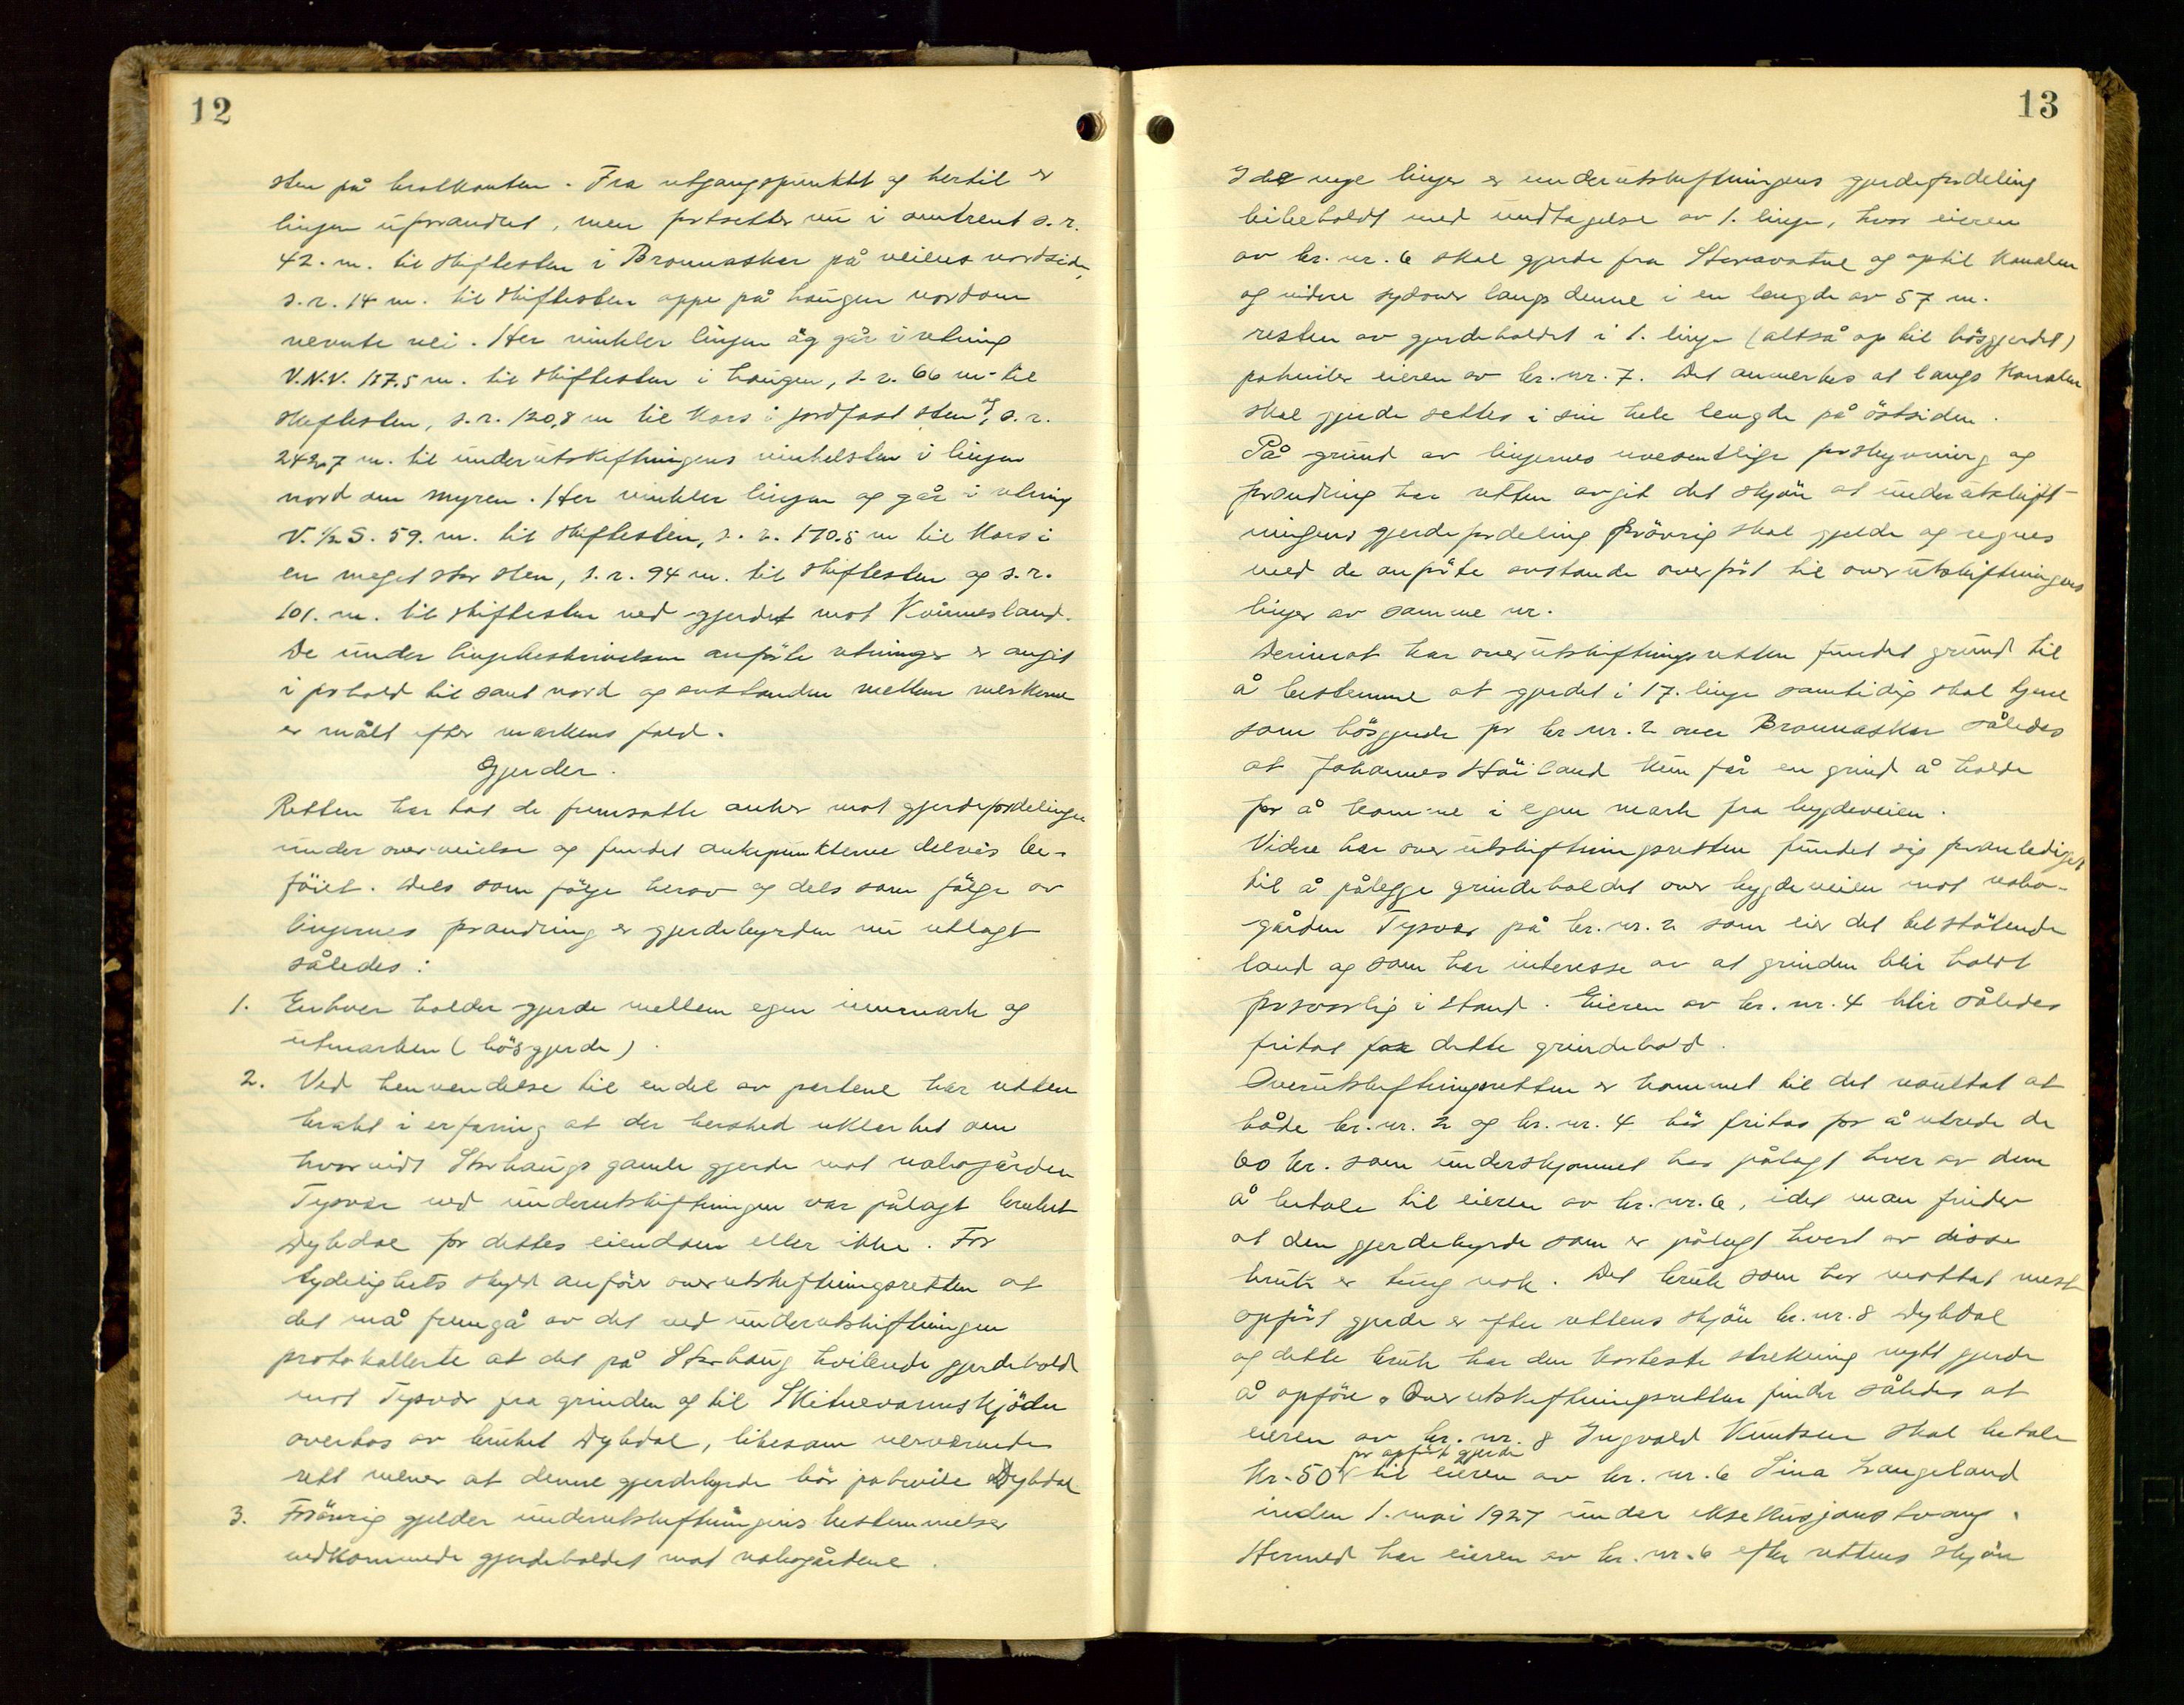 12
sten på brotkanten. Fra utgangspunktet og hertil er
linjen uforandret, men fortsetter nu i omtrent s. r.
42. m. til skiftesten i Bronnasker på veiens nordside,
s. r. 14 m. til skiftesten oppe på haugen nordom
nevnte vei. Her vinkler linjen og går i retning
V.N.V. 157.5 m. til skiftesten i haugen, s. r. 66 m. til
skiftesten, s. r. 120,8 m til kors i jordfast sten og s. r.
242,7 m. til underutskiftningens vinkelsten i linjen
nord om myren. Her vinkler linjen og går i retning
V. ½ S. 59. m. til skiftesten, s. r. 170.5 m til kors i
en meget stor sten, s. r. 94 m. til skiftesten og s. r.
101. m. til skiftesten ved gjerdet mot Kvinnesland.
De under linjebeskrivelsen anførte retninger er angit
i forhold til sant nord og avstanden mellem merkerne
er målt efter markens fald.
Gjerder.
Retten har tat de fremsatte anker mot gjerdefordelingen
under overveielse og fundet ankepunkterne delvis be-
føiet. Dels som følge herav og dels som følge av
linjernes forandring er gjerdebyrden nu utlagt
således:
1. Enhver holder gjerde mellem egen innmark og
utmarken (bøsgjerde).
2. Ved henvendelse til endel av partene har retten
bragt i erfaring at der hersked uklarhet om
hvorvidt Storhaugs gamle gjerde mot nabogården
Tysvær ved underutskiftningen var pålagt bruket
Dybdal for dettes eiendom eller ikke. For
tydelighets skyld anfører overutskiftningsretten at
det må fremgå av det ved underutskiftningen
protokollerte at det på Storhaug hvilende gjerdehold
mot Tysvær fra grinden og til Skitnevannskjødn
overtas av bruket Dybdal, likesom nerværende
rett mener at denne gjerdebyrde bør påhvile Dybdal
3. Forøvrig gjelder underutskiftningens bestemmelser
vedkommende gjerdeholdet mot nabogårdene.
13
I de nye linjer er underutskiftningens gjerdefordeling
bibeholdt med undtagelse av 1. linje, hvor eieren
av br. nr. 6 skal gjerde fra Storavatnet og optil kanalen
og videre sydover langs denne i en lengde av 57 m.
resten av gjerdeholdet i 1. linje (altså op til bøsgjerdet)
påhviler eieren av br. nr. 7. Det anmerkes at langs kanalen
skal gjerde settes i sin hele lengde på østsiden.
På grund av linjernes uvesentlige forskyvning og
forandring har retten avgit det skjøn at underutskift-
ningens gjerdefordeling forøvrig skal gjelde og regnes
med de anførte avstande overført til overutskiftningens
linjer av samme nr.
Derimot har overutskiftningsretten fundet grund til
å bestemme at gjerdet i 17. linje samtidig skal tjene
som bøsgjerde for br. nr. 2 over Bronnasker således
at Johannes Høiland kun får en grind å holde
for å komme i egen mark fra bygdeveien.
Videre har overutskiftningsretten fundet sig foranlediget
til å pålegge grindeholdet over bygdeveien mot nabo-
gården Tysvær på br. nr. 2 som eier det tilstøtende
land og som har interesse av at grinden blir holdt
forsvarlig i stand. Eieren av br. nr. 4 blir således
fritat for dette grindehold.
Overutskiftningsretten er kommet til det resultat at
både br. nr. 2 og br. nr. 4 bør fritas for å utrede de
60 kr. som underskjønnet har pålagt hver av dem
å betale til eieren av br. nr. 6, idet man finder
at den gjerdebyrde som er pålagt hvert av disse
bruk er tung nok. Det bruk som har mottat mest
opført gjerde er efter rettens skjøn br. nr. 8 Dybdal
og dette bruk har den korteste strekning nytt gjerde
å opføre. Overutskiftningsretten finder således at
eieren av br. nr. 8 Ingvald Knutsen skal betale
for opført gjerde
kr. 50 til eieren av br. nr. 6 Sina Langeland
inden 1. mai 1927 under eksekusjons tvang.
Hermed har eieren av br. nr. 6 efter rettens skjøn